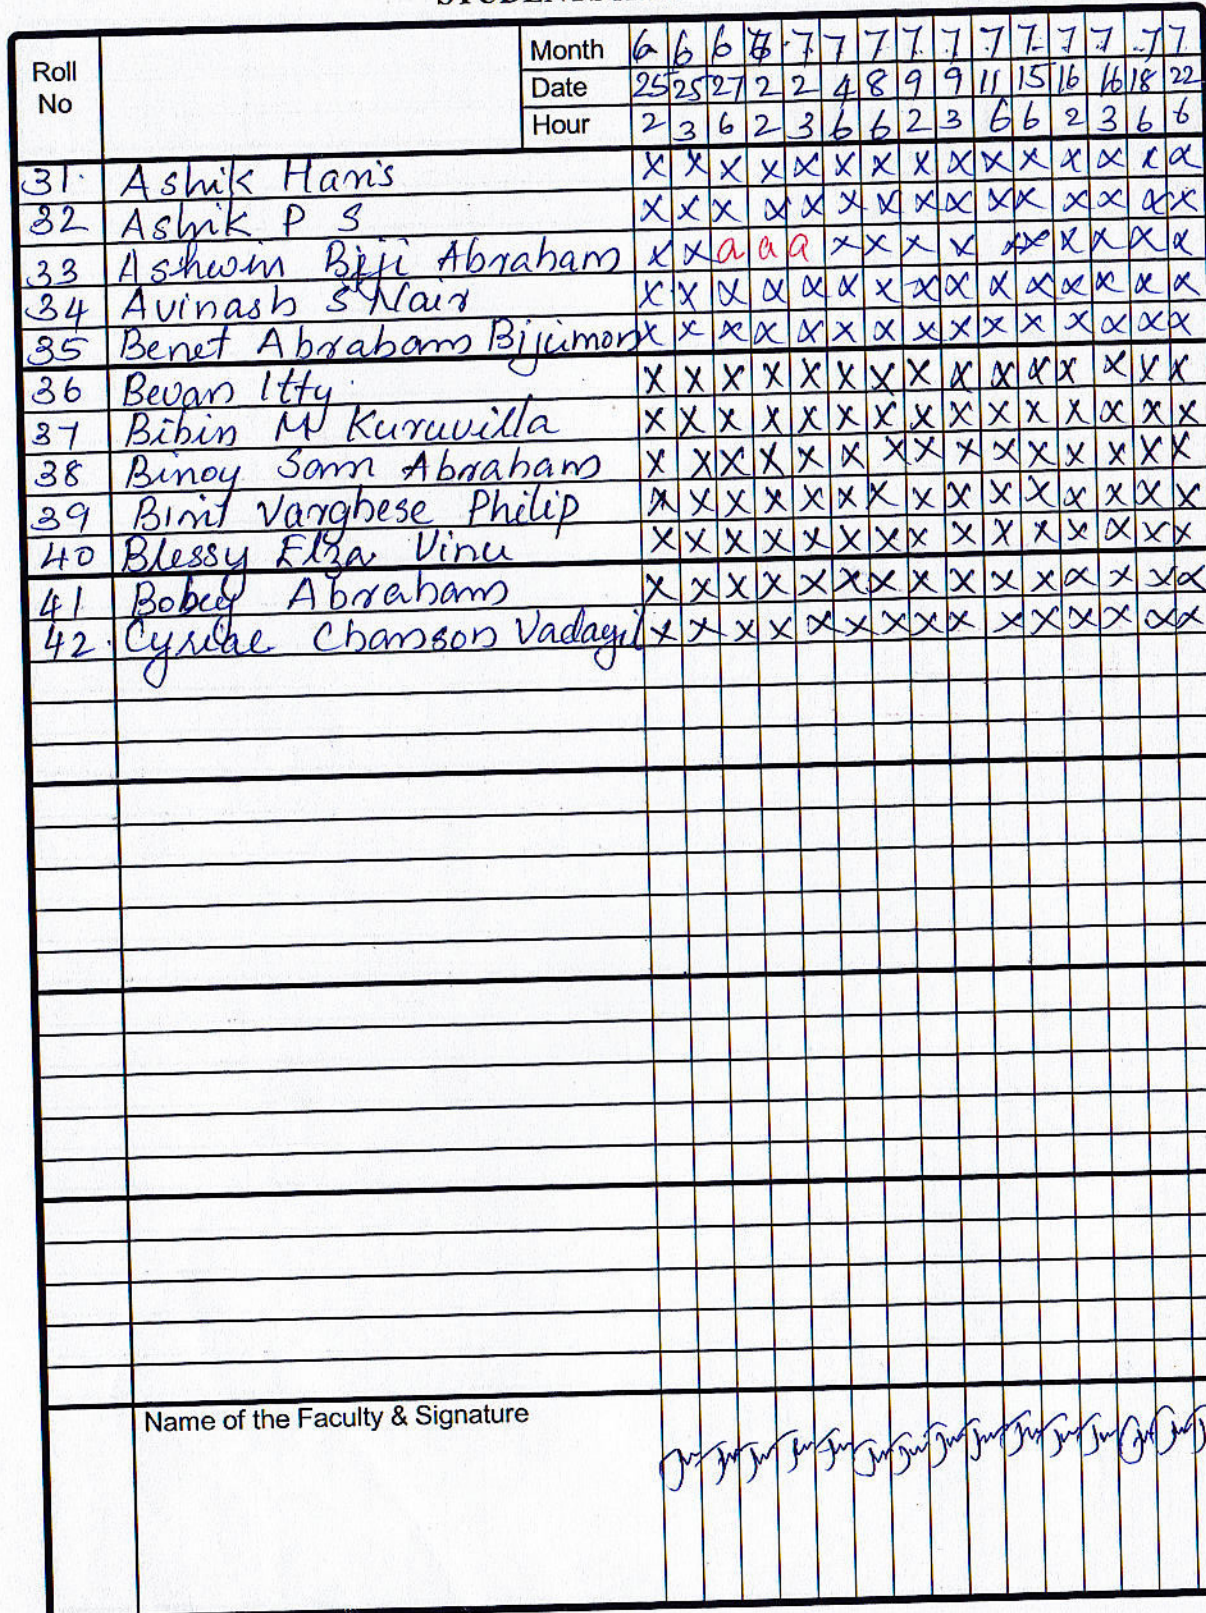 Roll No
Month 6 6 6 7 7 7 7 7 7 7 7 7 7 7 7
Date 25 25 27 2 2 4 8 9 9 11 15 16 16 18 22
Hour 2 3 6 2 3 6 6 2 3 6 6 2 3 6 6
31. Ashik Haris x x x x x x x x x x x x x x x
32 Ashik P S x x x x x x x x x x x x x x x
33 Ashwin Biji Abraham x x a a a x x x x x x x x x x
34 Avinash S Nair x x x x x x x x x x x x x x x
35 Benet Abraham Bijumon x x x x x x x x x x x x x x x
36 Bevan Itty x x x x x x x x x x x x x x x
37 Bibin M Kuruvilla x x x x x x x x x x x x x x x
38 Binoy Sam Abraham x x x x x x x x x x x x x x x
39 Binit Varghese Philip x x x x x x x x x x x x x x x
40 Blessy Elza Vinu x x x x x x x x x x x x x x x
41 Bobey Abraham x x x x x x x x x x x x x x x
42. Cyriac Chanson Vadayil x x x x x x x x x x x x x x x
Name of the Faculty & Signature